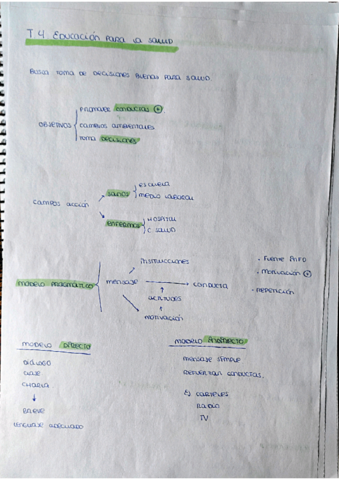 T.4 Educación para la salud
Busca toma de decisiones buenas para salud.
promover conductas +
objetivos
cambios ambientales
toma decisiones
escuela
sanos
medio laboral
campos acción
hospital
enfermos
C. salud
instrucciones
· Fuente info
modelo pragmático
mensaje
conducta
· motivación +
actitudes
· repetición
motivación
modelo directo
modelo indirecto
diálogo
mensaje simple
clase
despiertan conductas.
charla
carteles
breve
radio
lenguaje adecuado
TV